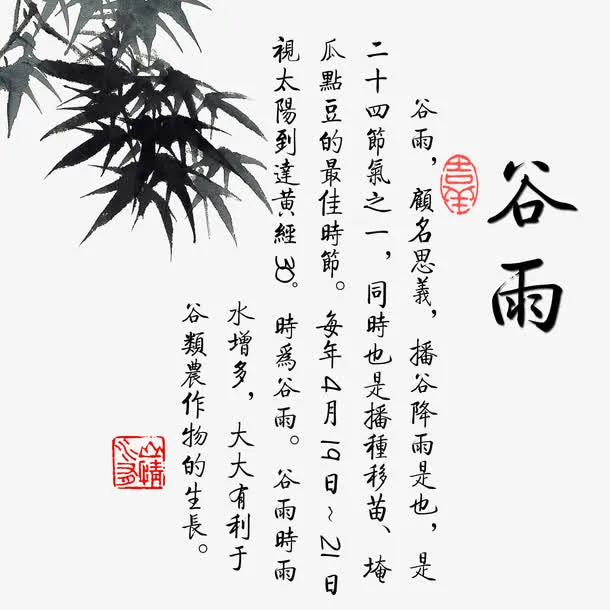 谷雨
吉羊
谷雨，顧名思義，播谷降雨是也，是
二十四節氣之一，同時也是播種移苗、埯
瓜點豆的最佳時節。每年4月19日~21日
視太陽到達黃經30。時爲谷雨。谷雨時雨
水增多，大大有利于
谷類農作物的生長。